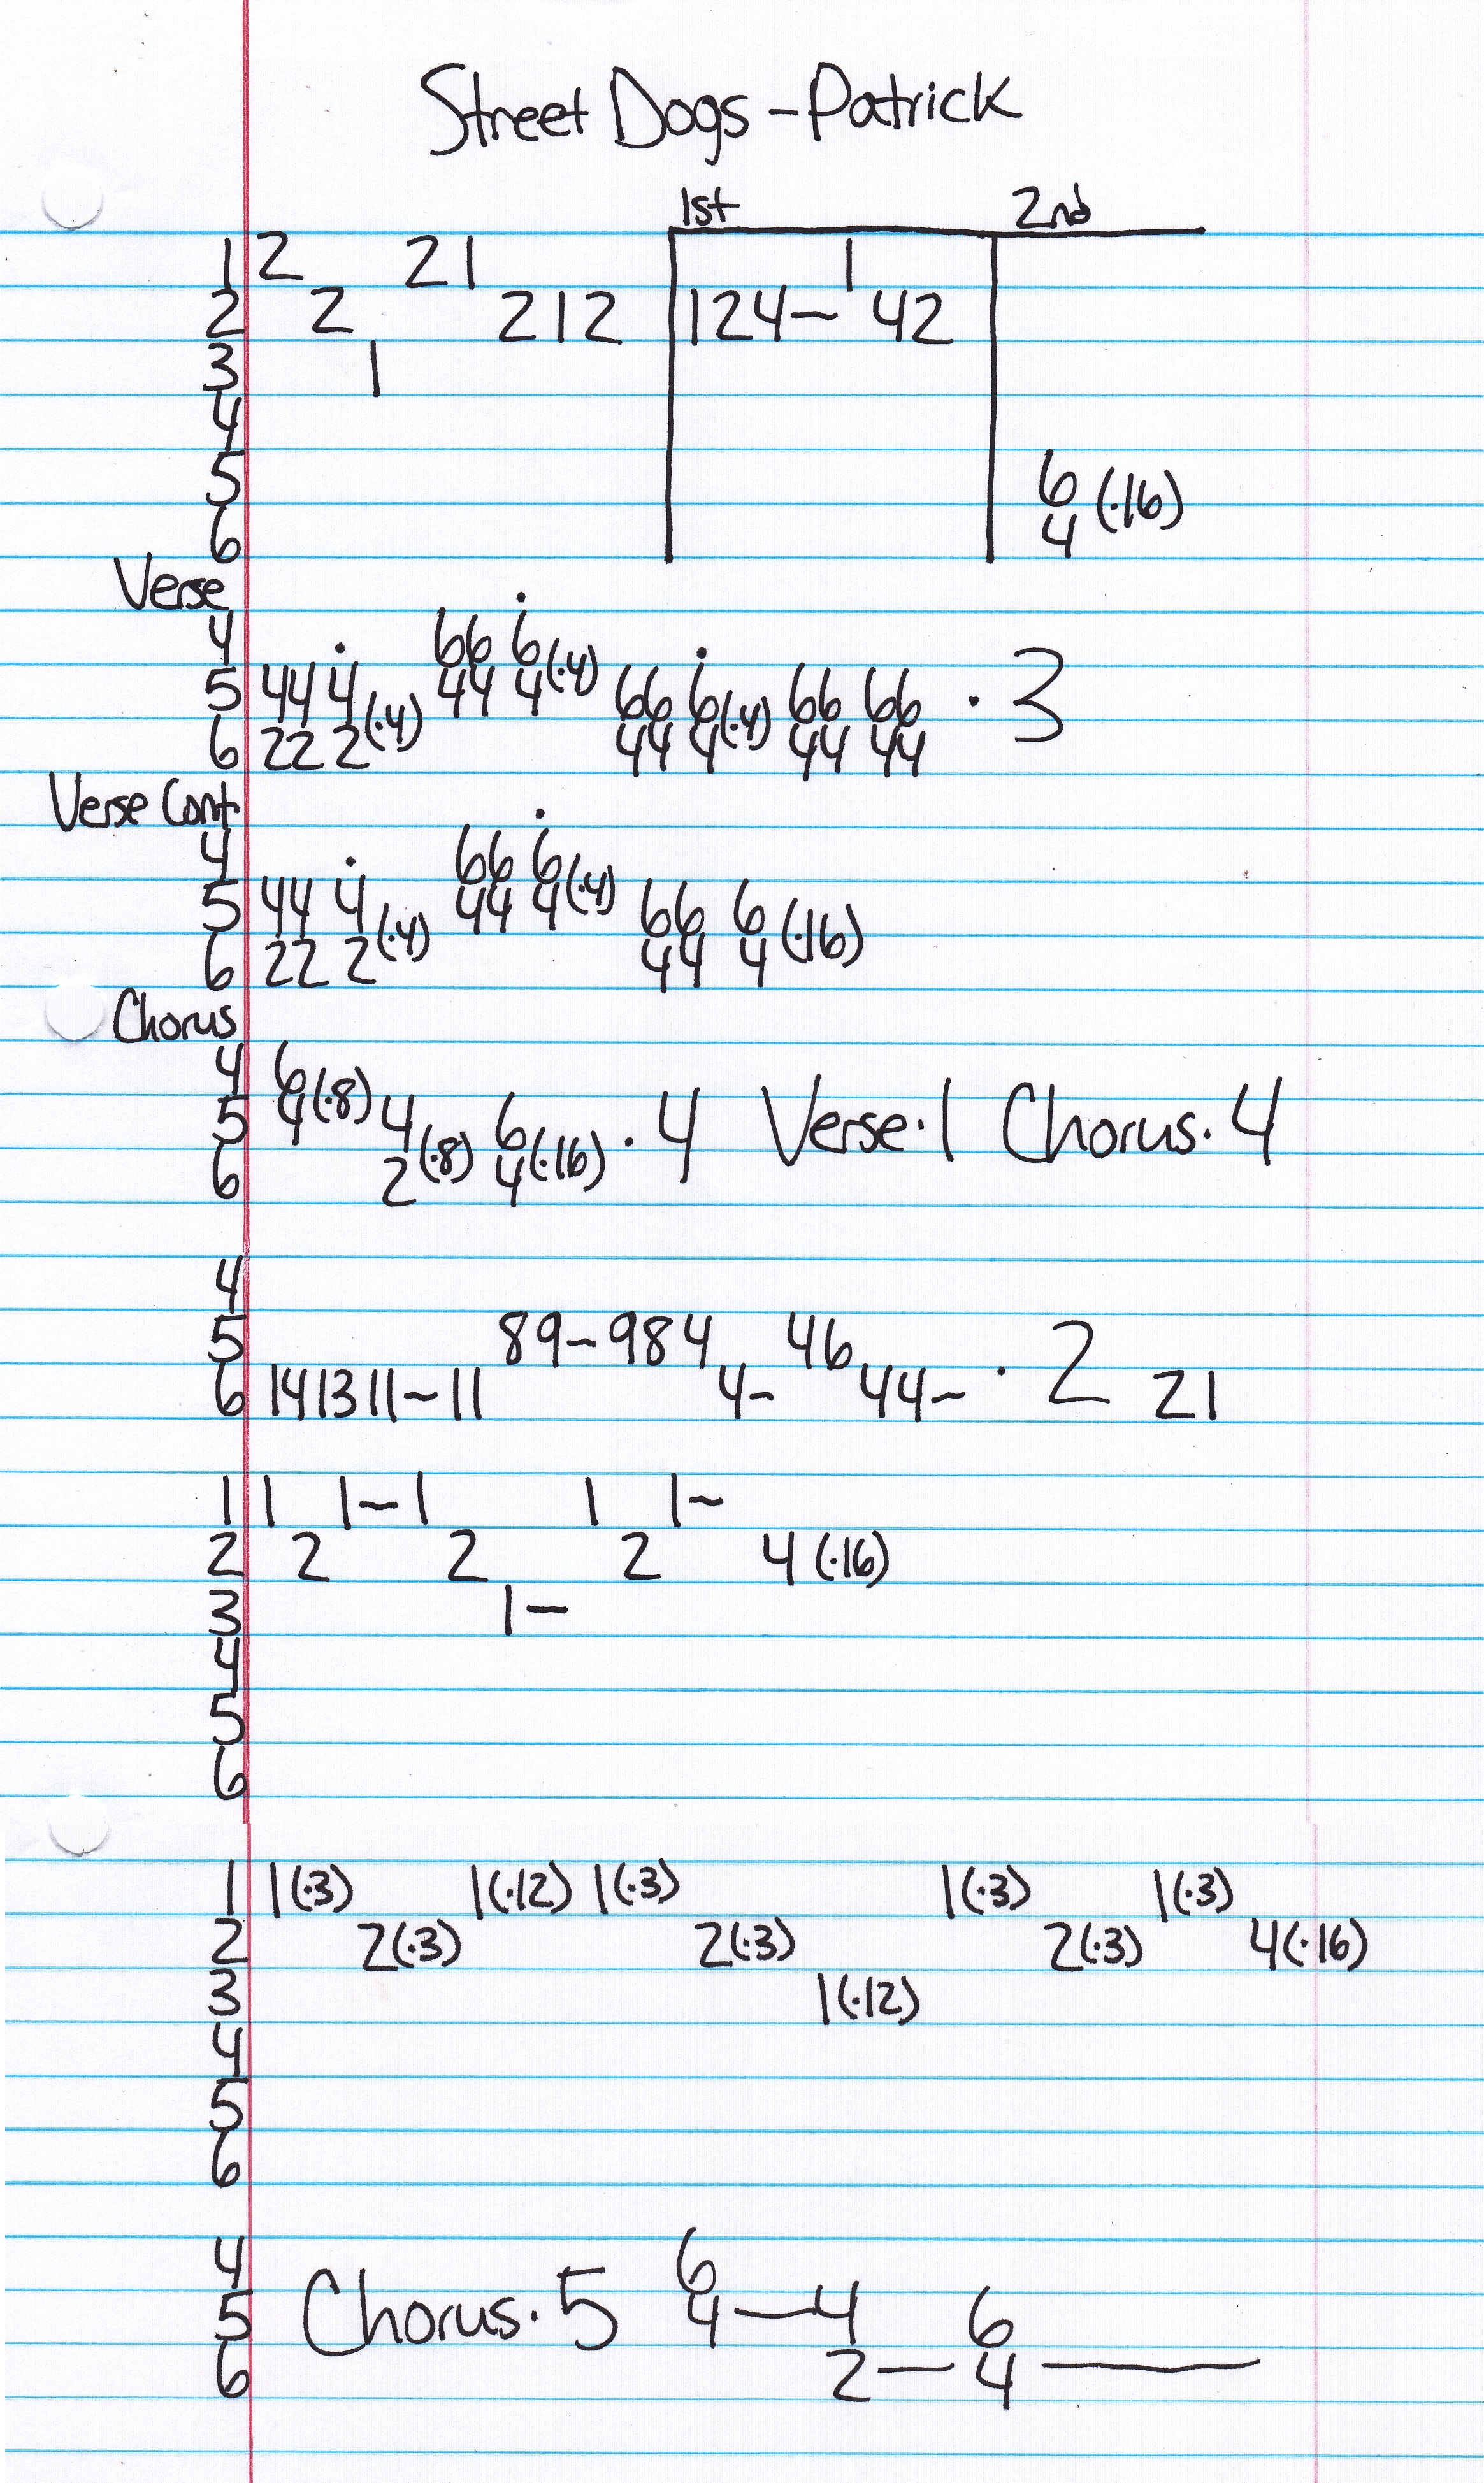 Street Dogs - Patrick
1st 2nd
1 2 21 1
2 2 212 124~ 42
3 1
4
5 6
6 4 (·16)
Verse
4 66 6
5 44 4 44 4(·4) 66 6 66 66 · 3
6 22 2(·4) 44 4(·4) 44 44
Verse Cont.
4 66 6
5 44 4 44 4(·4) 66 6
6 22 2(·4) 44 4(·16)
Chorus
4 6
5 4(·8) 4 6 · 4 Verse·1 Chorus·4
6 2(·8) 4(·16)
4
5 89~984 46
6 141311~11 4- 44~ · 2 21
1 1 1~1 1 1~
2 2 2 2 4(·16)
3 1-
4
5
6
1 1(·3) 1(·12) 1(·3) 1(·3) 1(·3)
2 2(·3) 2(·3) 2(·3) 4(·16)
3 1(·12)
4
5
6
4 6
5 Chorus·5 4—4 6
6 2—4—